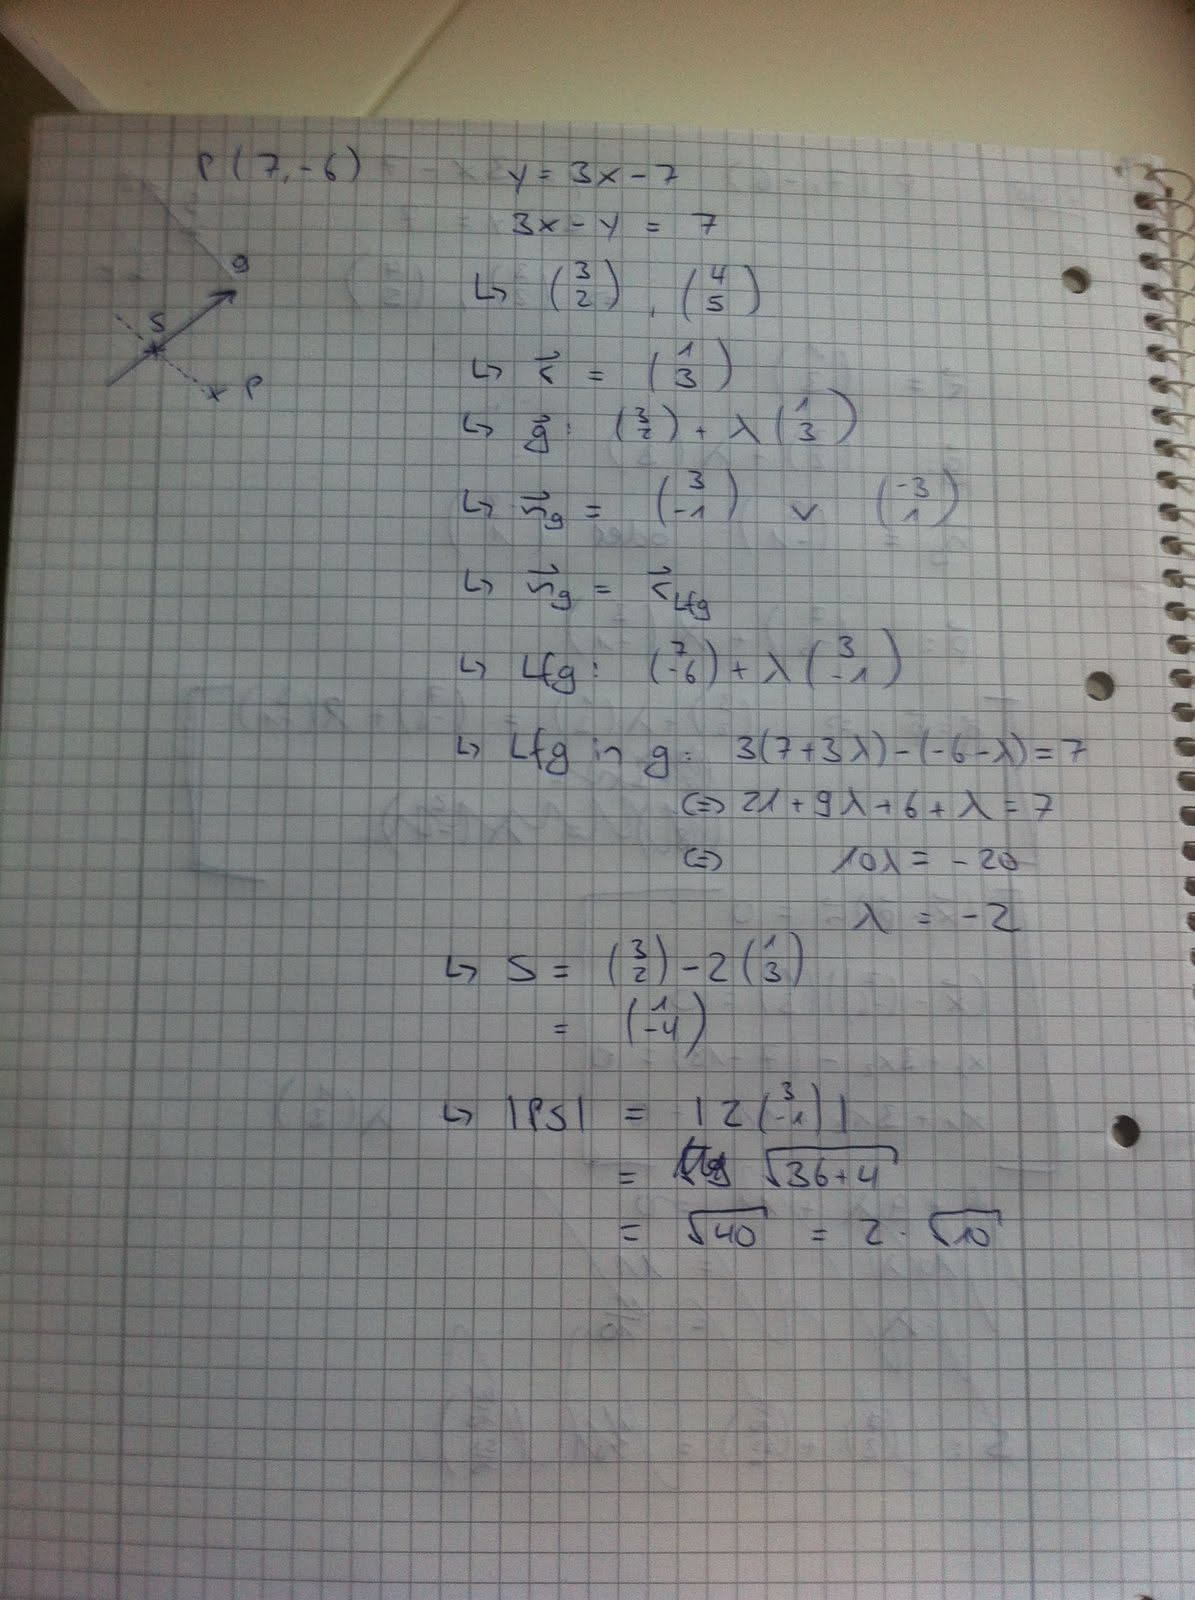 P(7,-6) y = 3x - 7
3x - y = 7
g
S
P
↳ (3 2), (4 5)
↳ r⃗ = (1 3)
↳ g⃗: (3 2) + λ(1 3)
↳ n⃗g = (3 -1) v (-3 1)
↳ n⃗g = r⃗Lfg
↳ Lfg: (7 -6) + λ(3 -1)
↳ Lfg in g: 3(7+3λ)-(-6-λ)=7
⇔ 21+9λ+6+λ=7
⇔ 10λ = -20
λ = -2
↳ S = (3 2) - 2(1 3)
= (1 -4)
↳ |PS| = |2(3 -1)|
= √36+4
= √40 = 2·√10